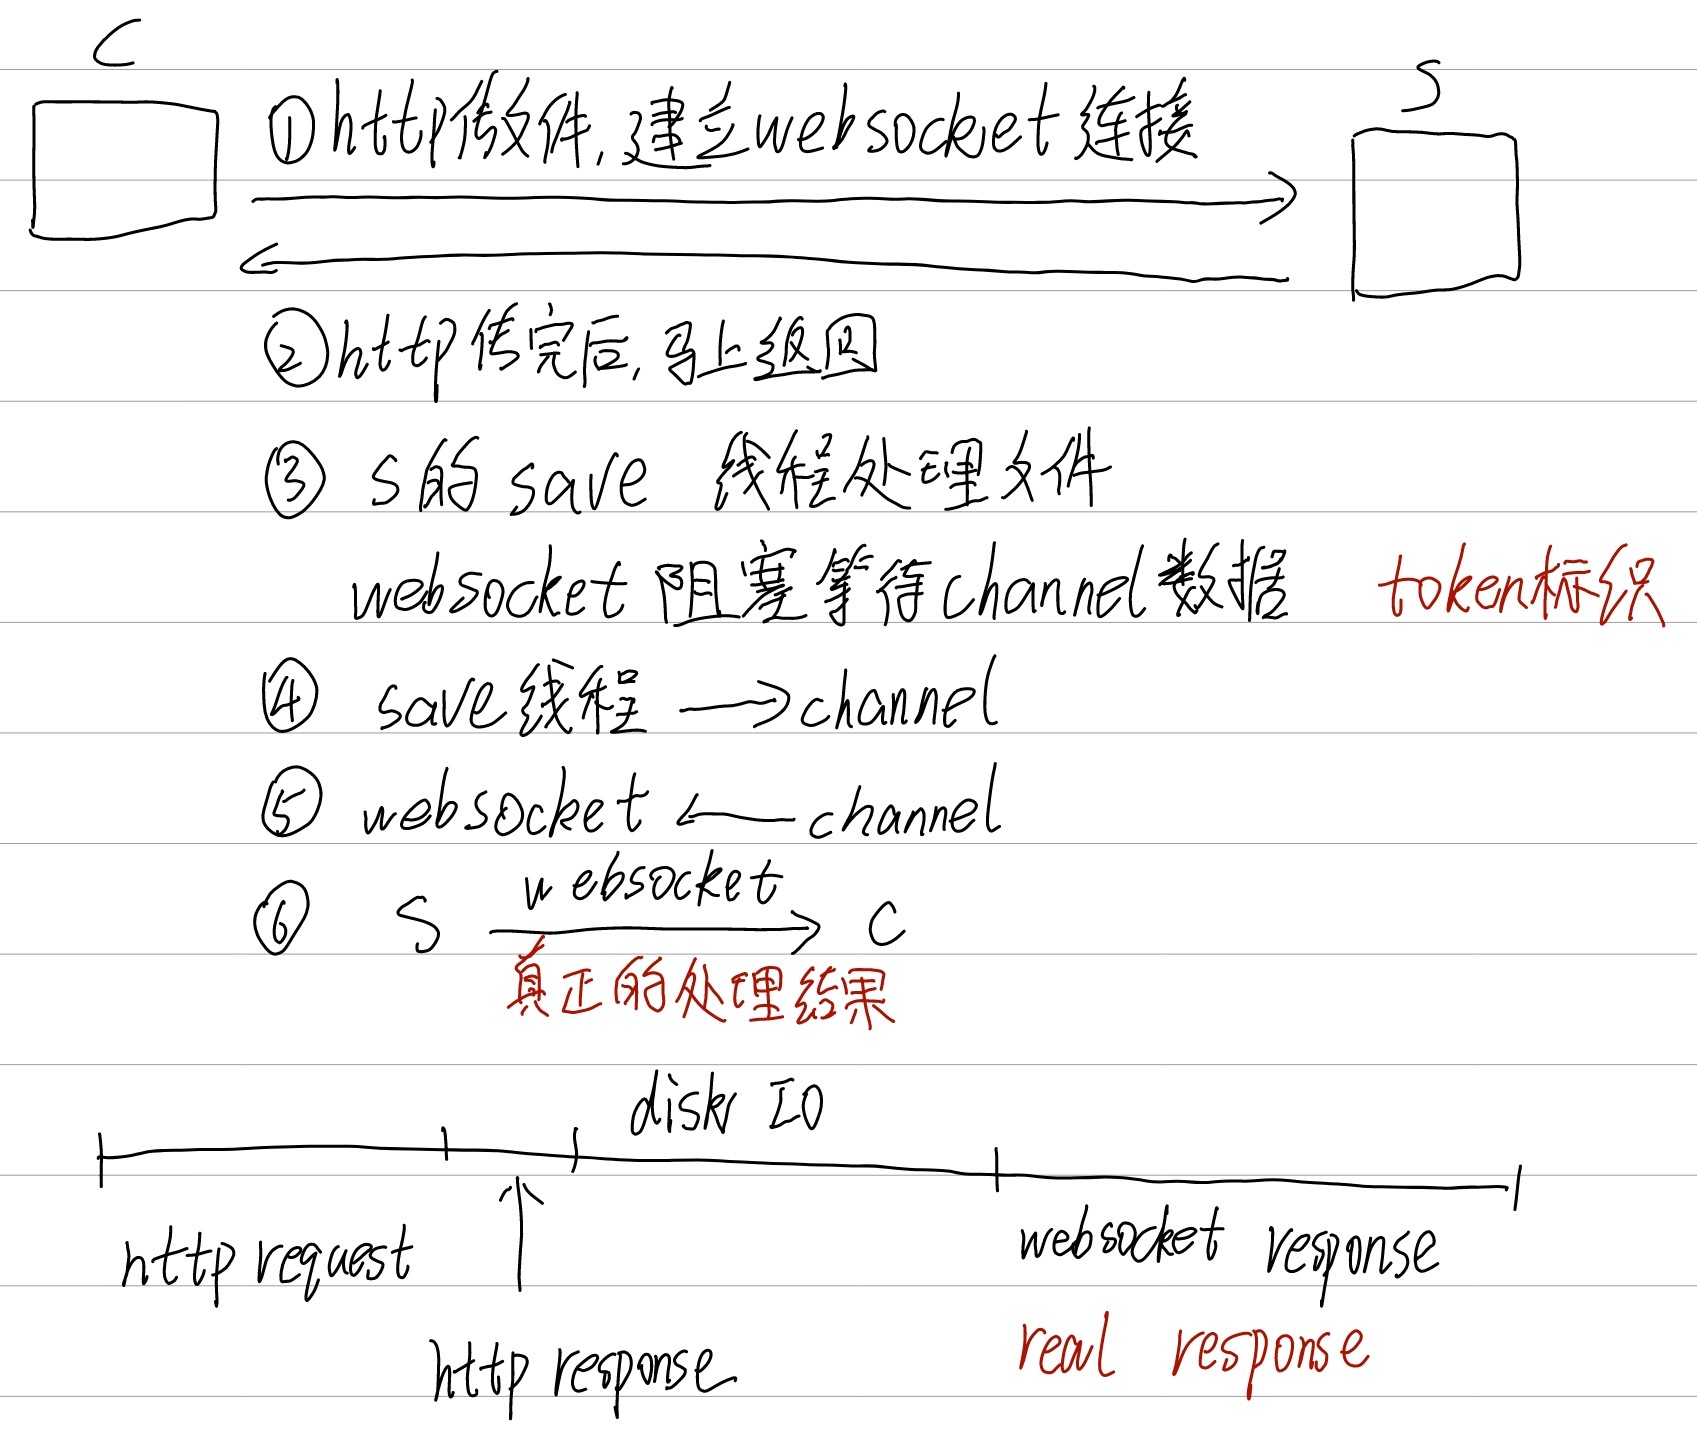 C
S
①http传文件,建立websocket连接
②http传完后,马上返回
③ S的save 线程处理文件
websocket阻塞等待channel数据 token标织
④ save线程 → channel
⑤ websocket ← channel
⑥ S websocket → C
真正的处理结果
disk IO
http request
websocket response
http response
real response